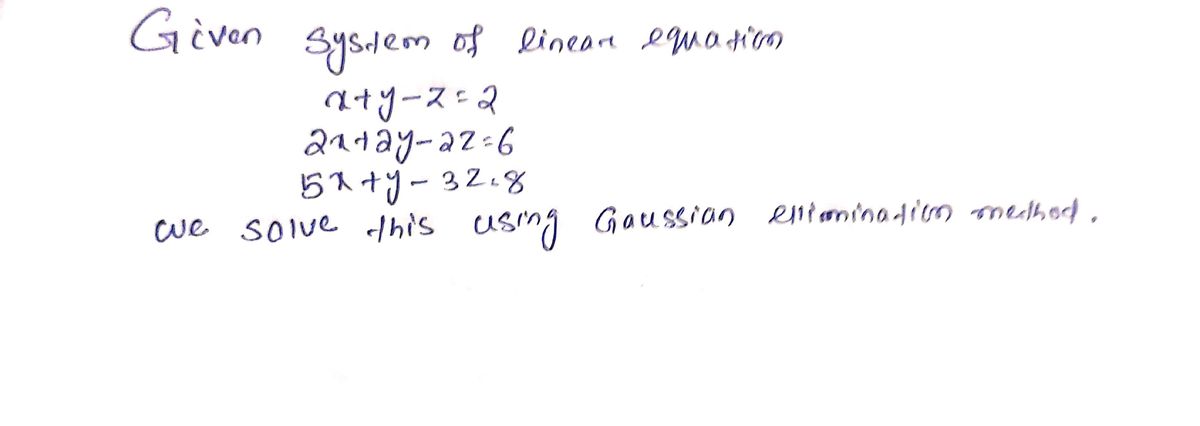 Given system of linear equation
x+y-z=2
2x+2y-2z=6
5x+y-3z=8
we solve this using Gaussian elimination method.